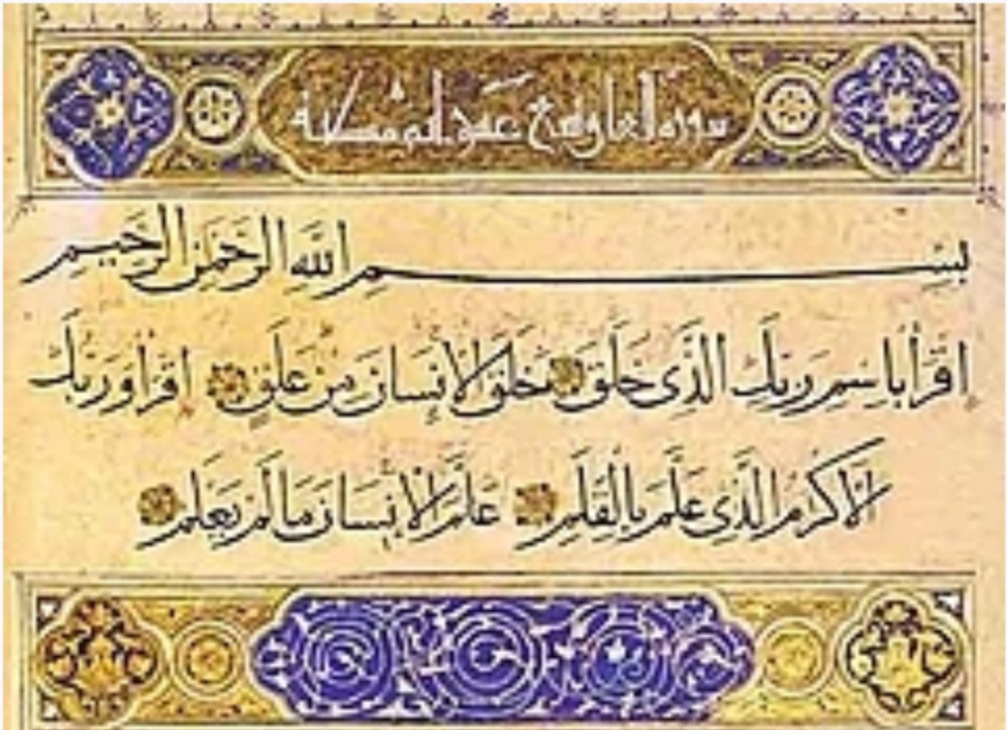 سورة العلق تسع عشر مكية
بِسْمِ اللَّهِ الرَّحْمَنِ الرَّحِيمِ
اقْرَأْ بِاسْمِ رَبِّكَ الَّذِى خَلَقَ خَلَقَ الْاِنْسَانَ مِنْ عَلَقٍ اقْرَأْ وَرَبُّكَ
الْاَكْرَمُ الَّذِى عَلَّمَ بِالْقَلَمِ عَلَّمَ الْاِنْسَانَ مَا لَمْ يَعْلَمْ